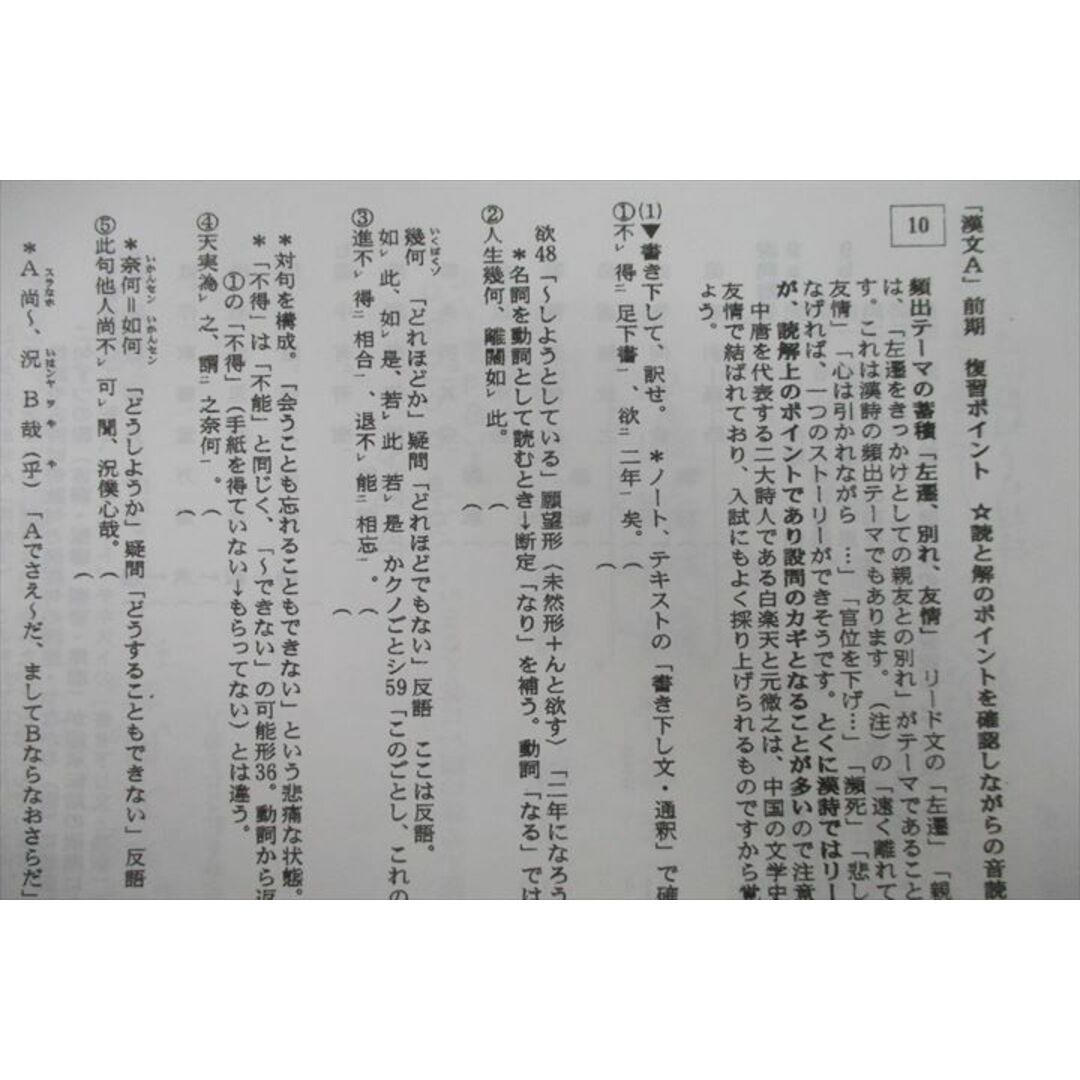 「漢文A」前期　復習ポイント　☆読と解のポイントを確認しながらの音読
10
頻出テーマの蓄積「左遷、別れ、友情」　リード文の「左遷」「親
は、「左遷をきっかけとしての親友との別れ」がテーマであること
す。これは漢詩の頻出テーマでもあります。（注）の「遠く離れて
友情」「心は引かれながら…」「官位を下げ…」「瀕死」「悲し
なげれば、一つのストーリーができそうです。とくに漢詩ではリー
が、読解上のポイントであり設問のカギとなることが多いので注意
中唐を代表する二大詩人である白楽天と元微之は、中国の文学史
友情で結ばれており、入試にもよく採り上げられるものですから覚
ょう。
(1)▼書き下して、訳せ。　＊ノート、テキストの「書き下し文・通釈」で確
①不レ得二足下書一、欲二二年一矣。（
（
欲48「～しようとしている」願望形（未然形＋んと欲す）「二年になろう
＊名詞を動詞として読むとき→断定「なり」を補う。動詞「なる」では
②人生幾何、離闊如レ此。（
（
幾何いくばくゾ　「どれほどか」疑問「どれほどでもない」反語　ここは反語。
如レ此、如レ是、若レ此　若レ是　かクノごとシ59「このごとし、これの
③進不レ得二相合一、退不レ能二相忘一。（
（
＊対句を構成。「会うことも忘れることもできない」という悲痛な状態。
＊「不得」は「不能」と同じく、「～できない」の可能形36。動詞から返
①の「不得」（手紙を得ていない→もらってない）とは違う。
④天実為レ之、謂二之奈何一。（
（
＊奈何いかんセン＝如何いかんセン　「どうしようか」疑問「どうすることもできない」反語
⑤此句他人尚不レ可レ聞、況僕心哉。（
（
＊A尚スラなホ～、況いはンヤB哉ヲや（乎や）「Aでさえ～だ、ましてBならなおさらだ」